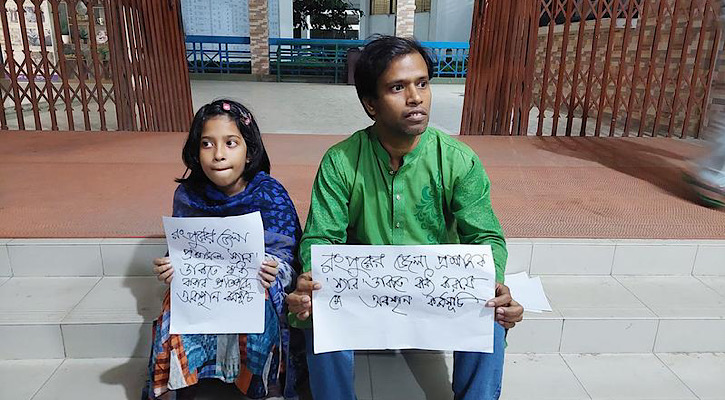 রংপুরের জেলা
"স্যার"
ডাকতে বাধ্য
করার প্রতিবাদে
অবস্থান কর্মসূচি
রংপুরের জেলা প্রশাসকের
"স্যার" ডাকতে বাধ্য করায়
অবস্থান কর্মসূচি